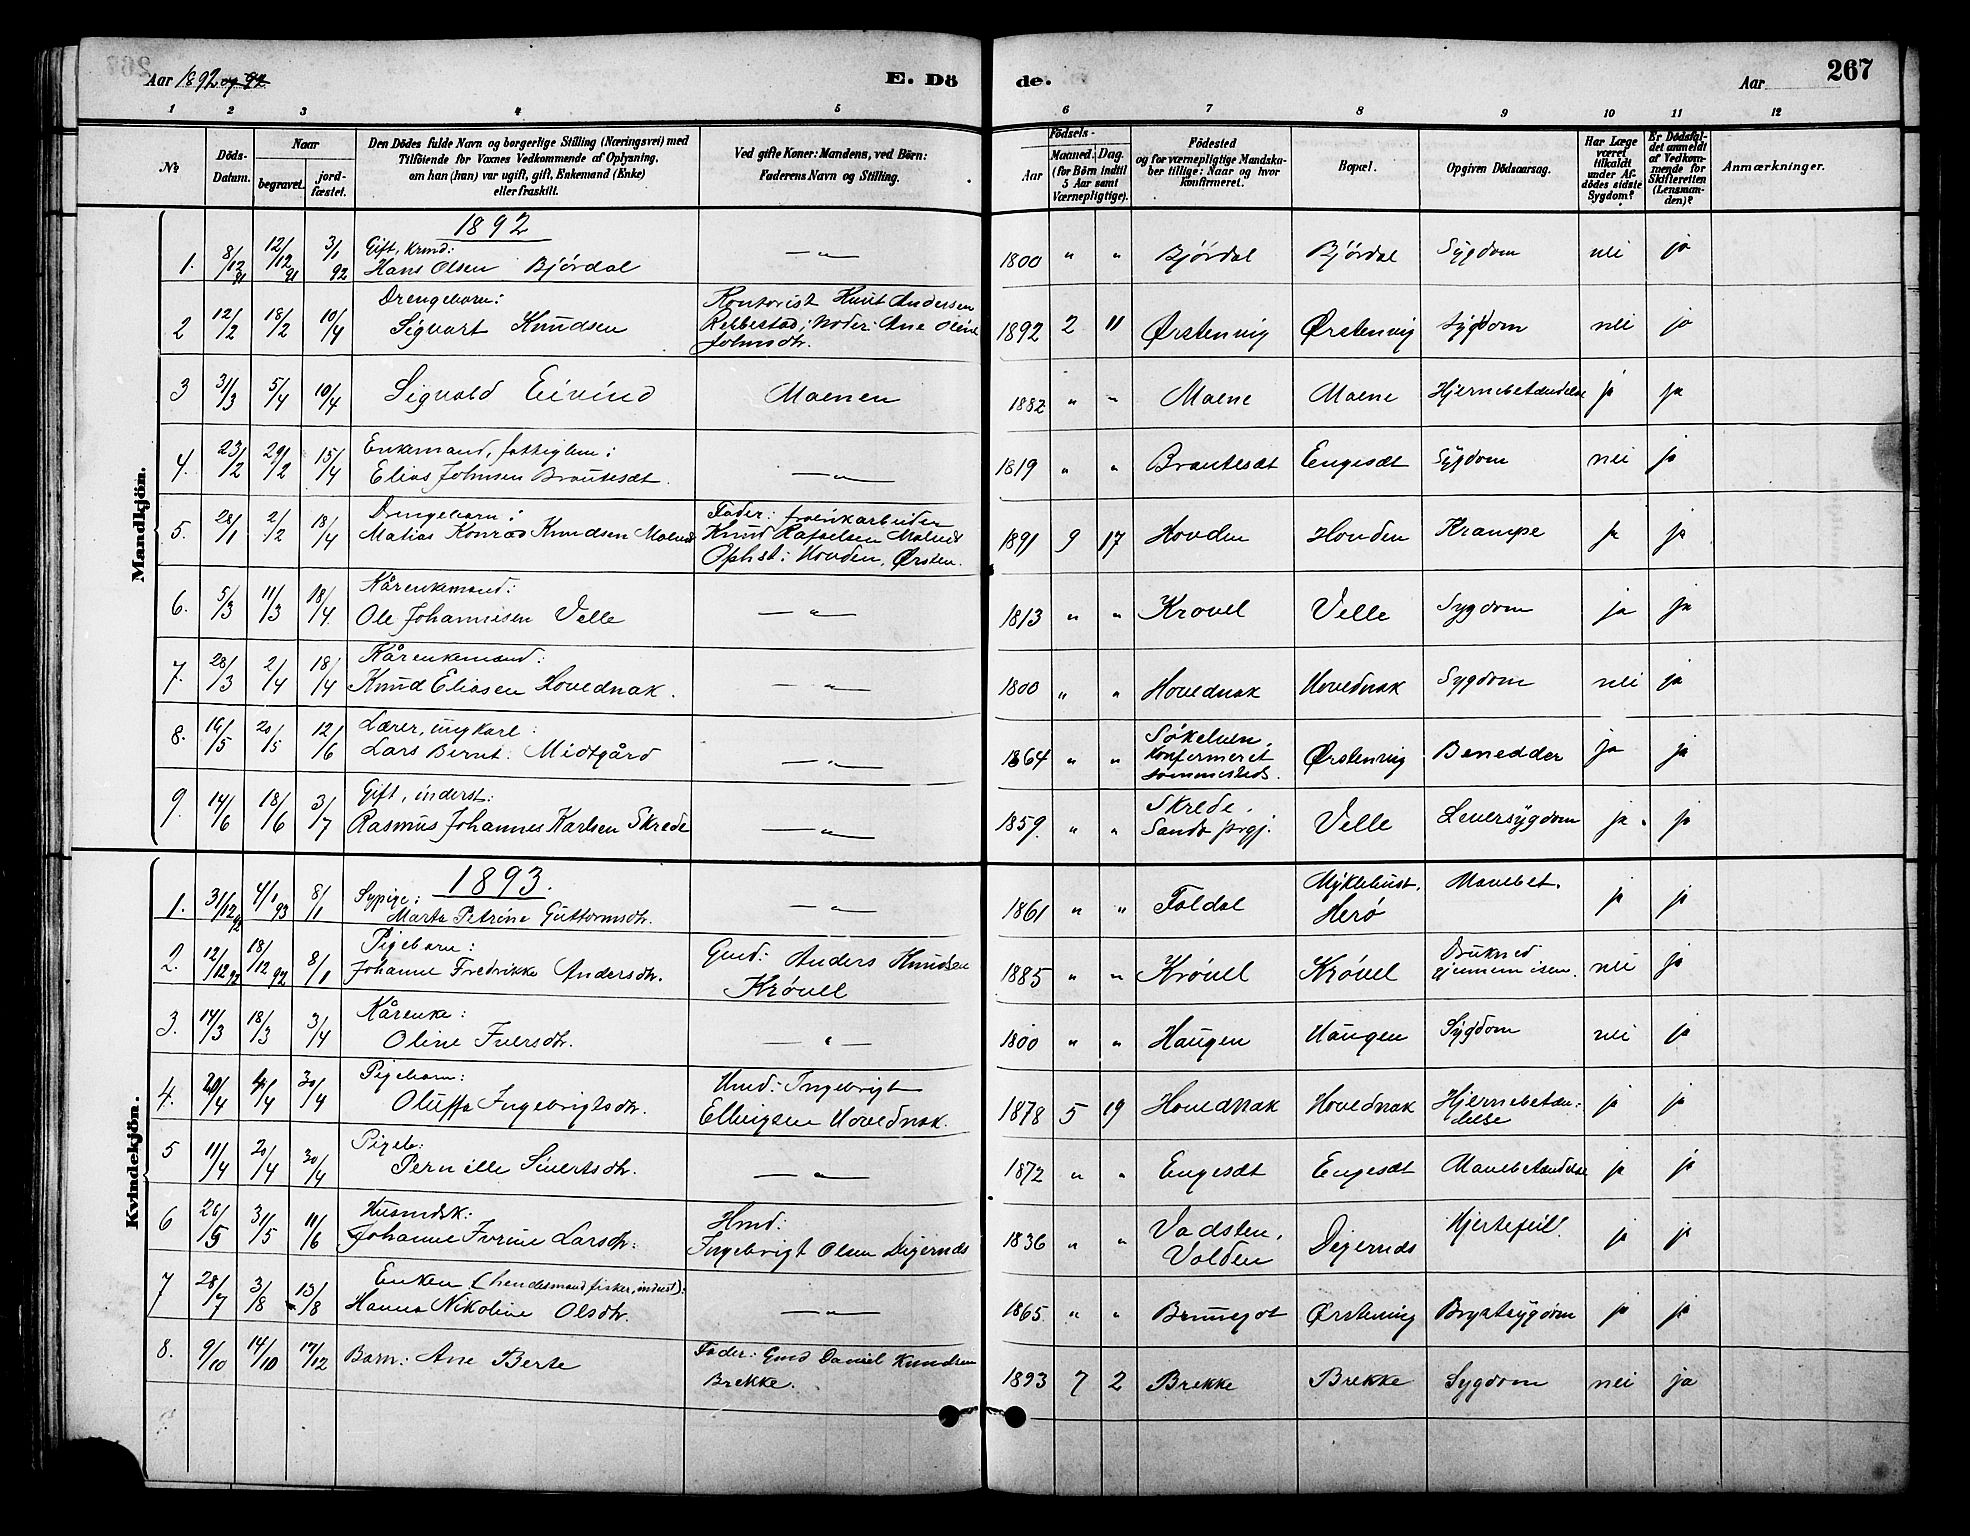 Aar 1892 og 92
E. Dö de.
Aar
267
1 2 3 4 5 6 7 8 9 10 11 12
No
Döds-Datum.
Naar
begravet.
jord-fæstet.
Den Dödes fulde Navn og borgerlige Stilling (Næringsvei) med
Tilföiende för Voxnes Vedkommende af Oplysning,
om han (hun) var ugift, gift, Enkemand (Enke)
eller fraskilt.
Ved gifte Koner: Mandens, ved Börn:
Faderens Navn og Stilling.
Födsels-
Aar
Maaned. Dag.
(for Börn indtil
5 Aar samt
Værnepligtige).
Födested
og for værnepligtige Mandska-
ber tillige: Naar og hvor
konfirmeret.
Bopæl.
Opgiven Dödsaarsag.
Har Læge
været
tilkaldt
under Af-
dödes sidste
Sygdom?
Er Dödsfal-
det anmeldt
af Vedkom-
mende for
Skifteretten
(Lensman-
den)?
Anmærkninger.
Mandkjön.
1892
1. 8/12 91 12/12 91 3/1 92 Gift, Krmd:
Hans Olsen Bjørdal — " — 1800 " " Bjørdal Bjørdal Sygdom nei ja
2 12/2 18/2 10/4 Drengebarn:
Sigvart Knudsen
Kontorist Knut Andersen
Rebbestad; Moder: Ane Oline
Johnsdtr.
1892 2 11 Ørstenvig Ørstenvig Sygdom nei ja
3 31/3 5/4 10/4 Sigvald Eivind Moenen 1882 " " Moene Moene Hjernebetændelse ja ja
4. 23/2 29/2 15/4 Enkemand, fattiglem:
Elias Johnsen Brautesæt. — " — 1819 " " Brautesæt Engesæt Sygdom nei ja
5. 28/1 2/2 18/4 Drengebarn:
Matias Konrad Knudsen Molnes
Fader: fabrikarbeider
Knud Rafaelsen Molnes
Ophst: Hovden, Ørsten.
1891 9 17 Hovden Hovden Krampe ja ja
6. 5/3 11/3 18/4. Kårenkemand:
Ole Johannesen Velle — " — 1813 " " Krøvel Velle Sygdom ja ja
7. 28/3 2/4 18/4 Kårenkemand:
Knud Eliasen Hovednak. — " — 1800 " " Hovednak Hovednak Sygdom nei ja
8. 16/5 20/5 12/6 Lærer, ungkarl:
Lars Bernt Midtgård — " — 1864 " "
Søkelven,
konfirmeret
sammesteds.
Ørstenvig Benedder ja ja
9. 14/6 18/6 3/7 Gift, inderst:
Rasmus Johannes Karlsen Skrede — " — 1859. " "
Skrede,
Sande prgj.
Velle Leversygdom ja. ja
Kvindekjön.
1893.
1. 31/12 92 4/1 93 8/1 Sypige:
Marta Petrine Guttormsdtr. — " — 1861 " " Foldal
Myklebust,
Herø
Mavebet. ja ja
2. 12/12 92 18/12 92 8/1 Pigebarn:
Johanne Fredrikke Andersdtr.
Gmd: Anders Knudsen
Krøvel
1885 " " Krøvel Krøvel
Drukned
gjennem isen.
nei ja
3. 14/3 18/3 3/4 Kårenke:
Oline Iversdtr. — " — 1800 " " Haugen Haugen Sygdom nei ja
4. 30/4 Pigebarn:
Oluffa Ingebrigtsdtr.
Hmd: Ingebrigt
Ellingsen Hovednak.
1878 5 19 Hovednak Hovednak
Hjernebetæn-
delse
ja ja
5 11/4 20/4 30/4 Pigeb:
Pernille Sivertsdtr. — " — 1872 " " Engesæt Engesæt Mavebetændelse ja ja
6 26/5 31/5 11/6 Husmdsk:
Johanne Ivrine Larsdtr.
Hmd:
Ingebrigt Olsen Digernæs
1836 " "
Vadsten,
Volden
Digernæs Hjertefeil. ja ja
7 28/7 3/8 13/8 Enken (hendes mand fisker, inderst):
Hanna Nikoline Olsdtr. — " — 1865 " " Ørstenvig Brystsygdom ja ja
8. 9/10 14/10 17/12 Barn: Ane Berte
Fader: Gmd Daniel Knudsen
Brekke.
1893 7 2 Brekke Brekke Sygdom nei ja